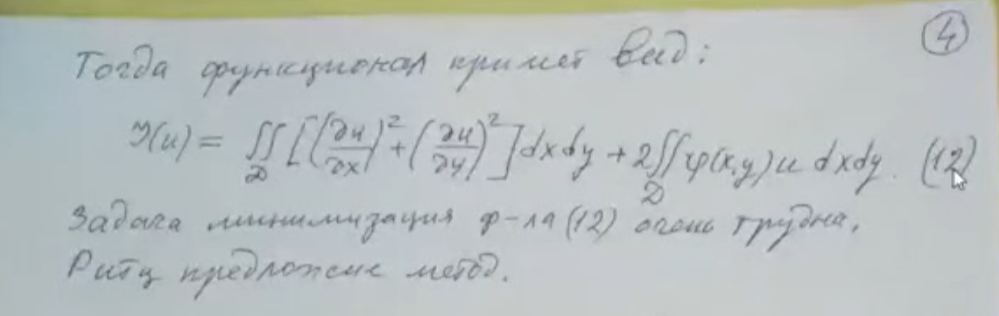 ④
Тогда функционал примет вид:
J(u) = ∬_D [(∂u/∂x)² + (∂u/∂y)²] dx dy + 2∬_D φ(x,y) u dx dy. (12)
Задача минимизация ф-ла (12) очень трудна,
Ритц предложил метод.